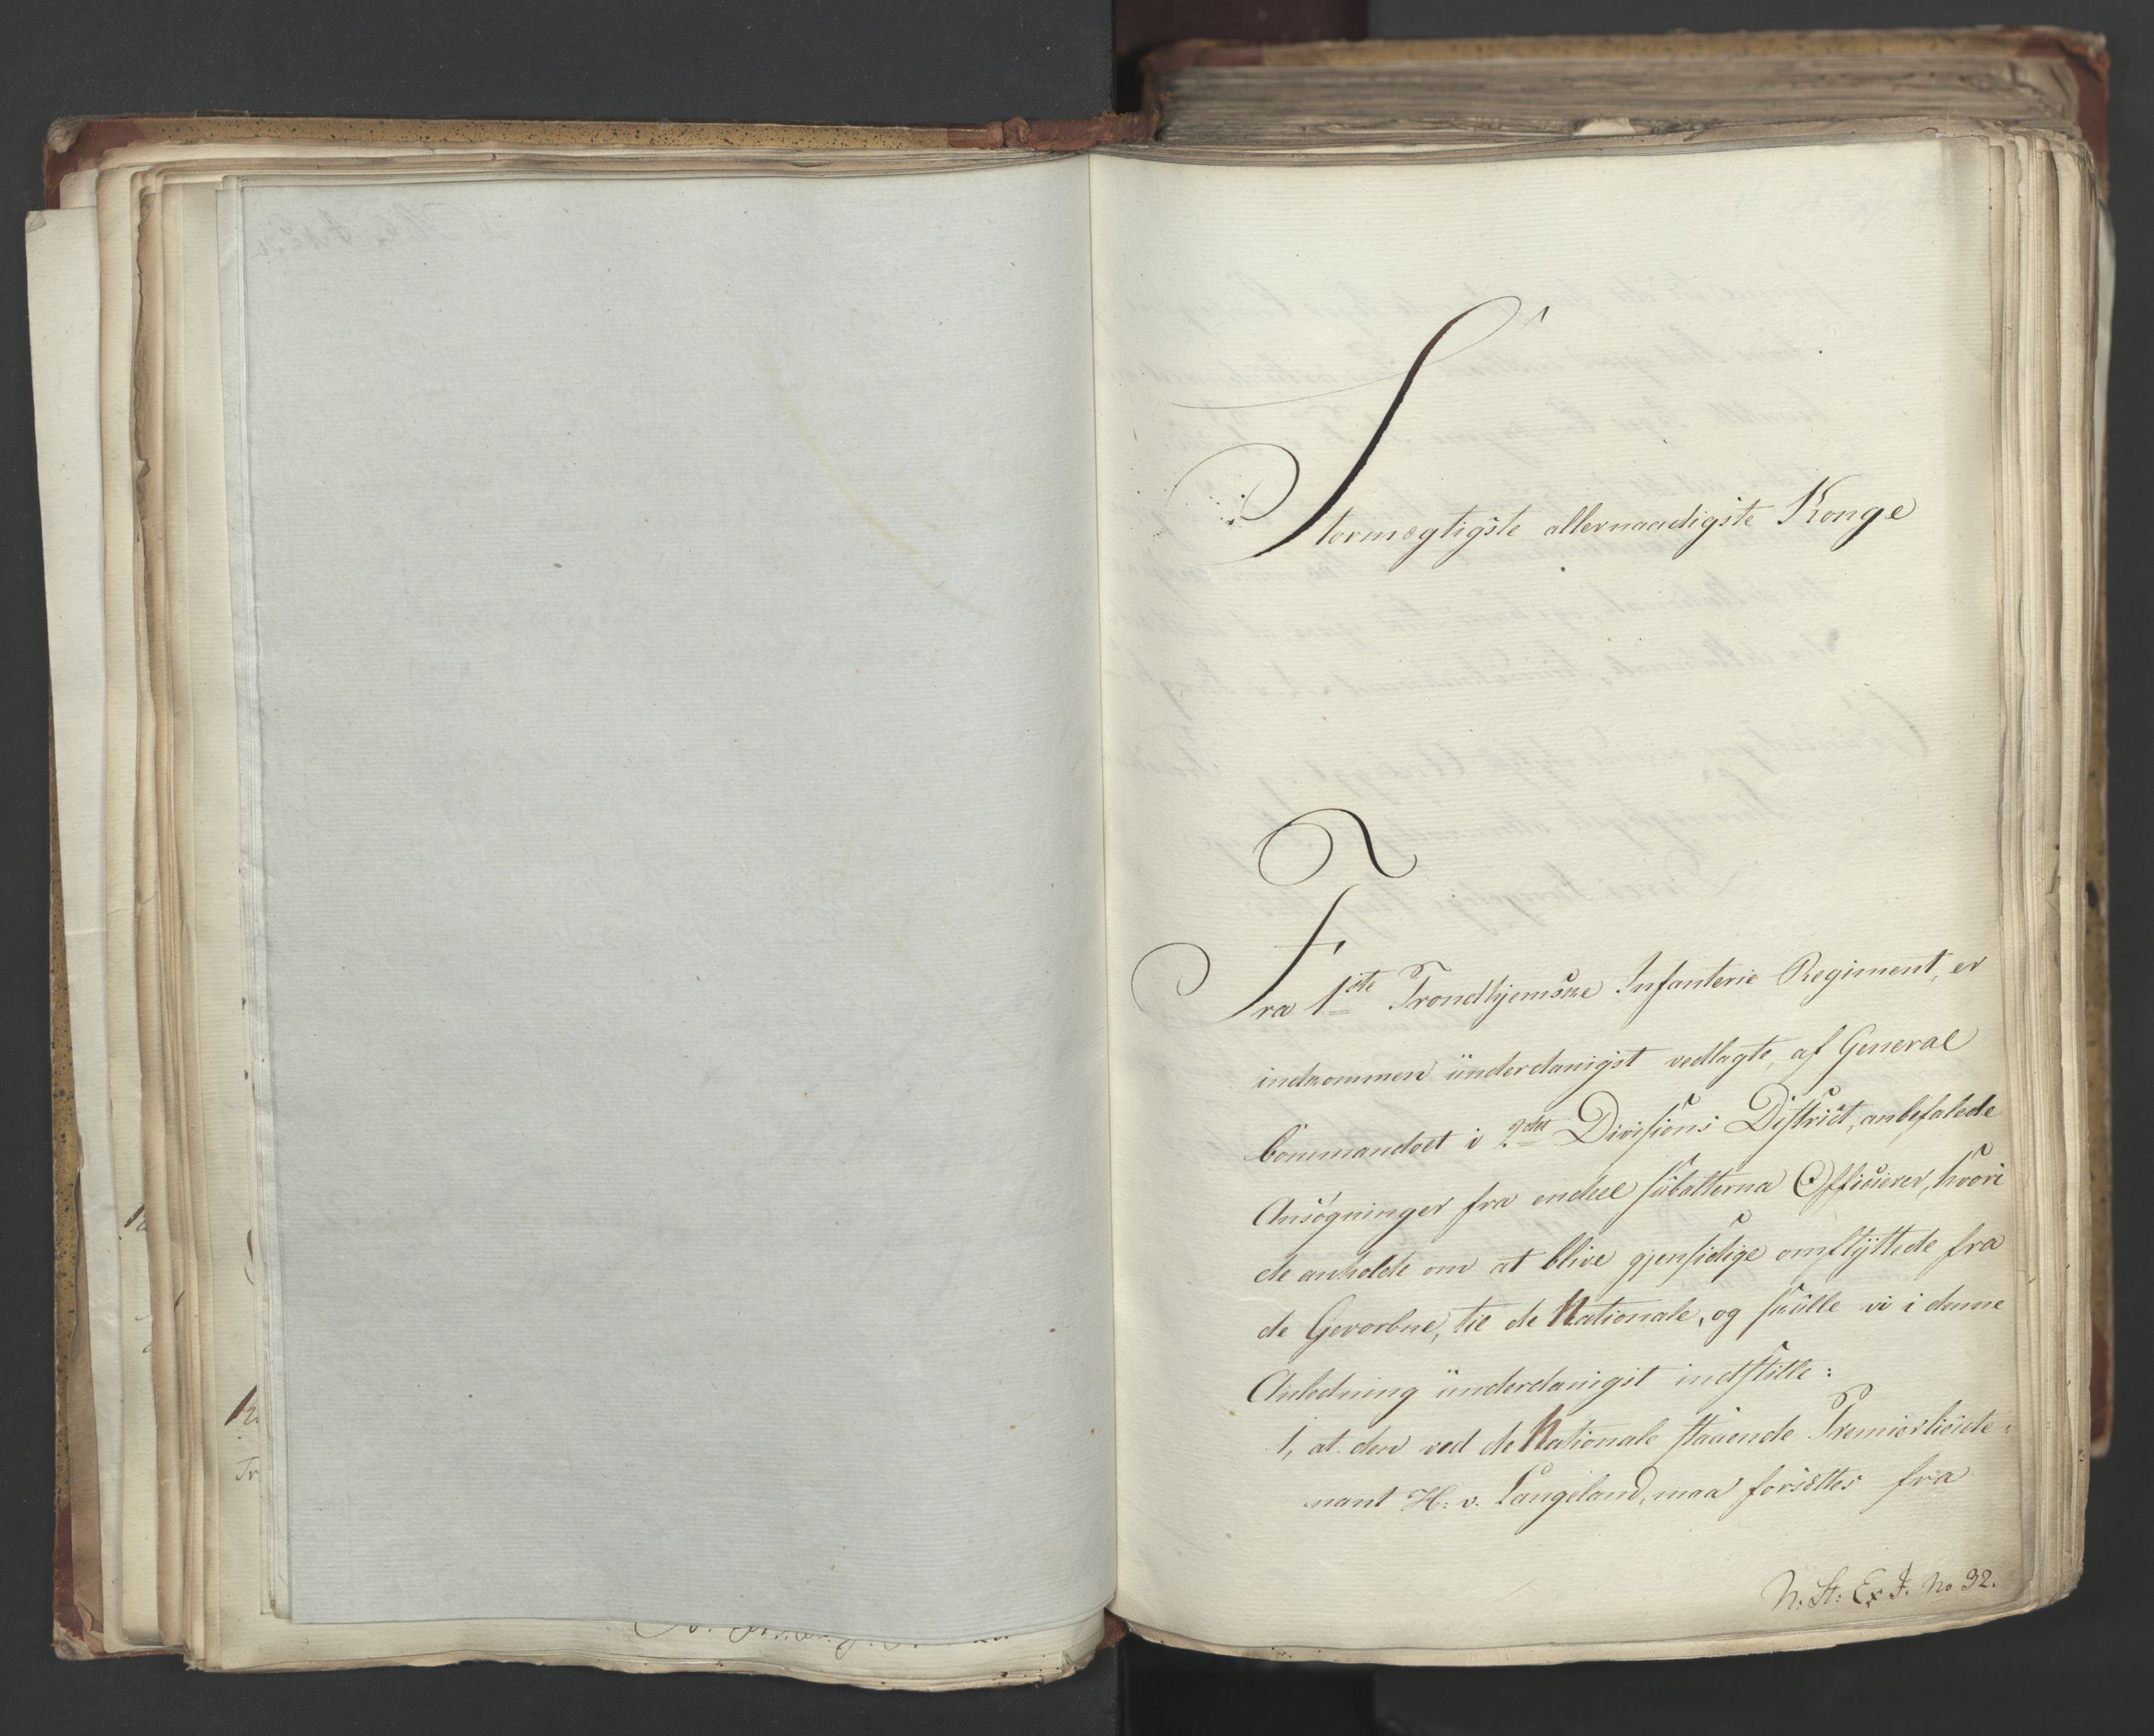 Stormægtigste allernaadigste Konge
Fra 1ste Trondhjemske Infanterie Regiment, er
indkommen ünderdanigst vedlagte, af General
Commandoet i 2det Divisions District, anbefalede
Ansøgninger fra endeel sübalterna Officierer, hvori
de anholde om at blive gjensidige omflÿttede fra
de Gevorbne, til de Nationale, og skülle vi i denne
Anledning ünderdanigst indstille:
1, at den ved de Nationale staaende Premierlieüte-
nant H: v. Langeland, maa forsættes fra
N: St: Ex J. No 32.